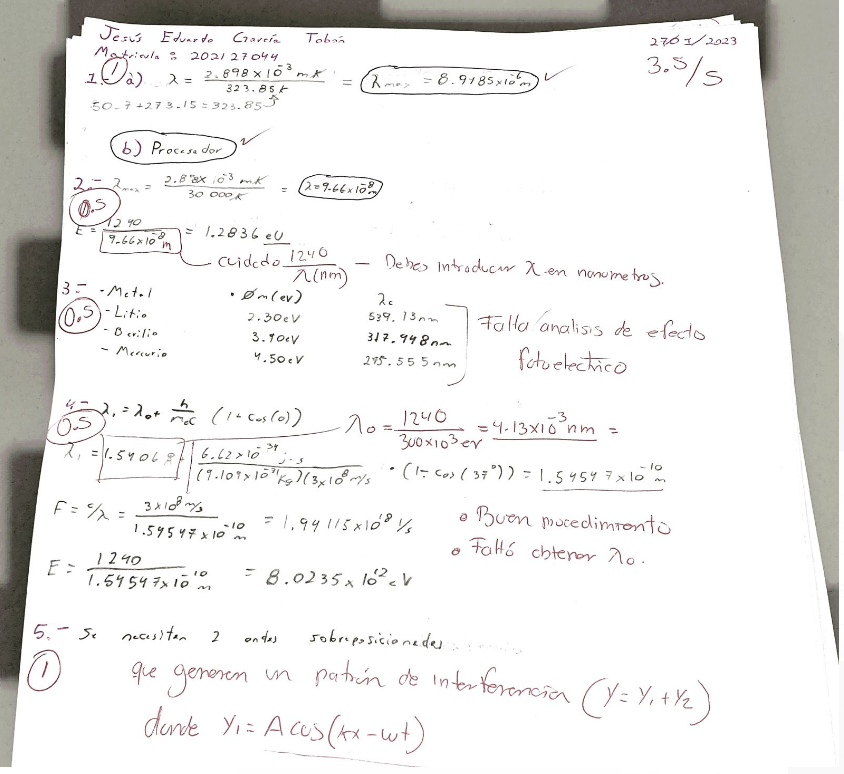 Jesús Eduardo García Tobón
270I/2023
Matricula: 202127044
3.5/5
1.- a) λ = 2.898x10⁻³ m.K / 323.85K = λmax = 8.9485x10⁻⁶m ✓
1
50.7+273.15=323.85
b) Procesador ✓
2.- λmax = 2.898x10⁻³ mK / 30 000K = λ=9.66x10⁻⁸m
0.5
E = 1240 / 9.66x10⁻⁸m = 1.2836 eV
cuidado 1240 / λ(nm) — Debes introducir λ en nanometros.
3.- - Metal · Øm(ev) λc
0.5 - Litio 2.30eV 539.13nm
- Berilio 3.90eV 317.948nm
- Mercurio 4.50eV 275.555nm
Falta analisis de efecto
fotoelectrico
4.- λ₁ = λ₀ + h / m₀c (1 - cos(θ))
0.5
λ₀ = 1240 / 300x10³ev = 4.13x10⁻³ nm =
λ₁ = 1.5406 + 6.62x10⁻³⁴ j.s / (9.109x10⁻³¹kg)(3x10⁸m/s · (1- cos(37°)) = 1.54547x10⁻¹⁰ m
F = c/λ = 3x10⁸m/s / 1.54547x10⁻¹⁰m = 1.94115x10¹⁸ 1/s
• Buen procedimiento
• Faltó obtener λ₀.
E = 1240 / 1.54547x10⁻¹⁰m = 8.0235x10¹² eV
5.- Se necesitan 2 ondas sobreposicionadas
1
que generen un patrón de interferencia (y = y₁+y₂)
donde y₁ = A cos(kx-wt)